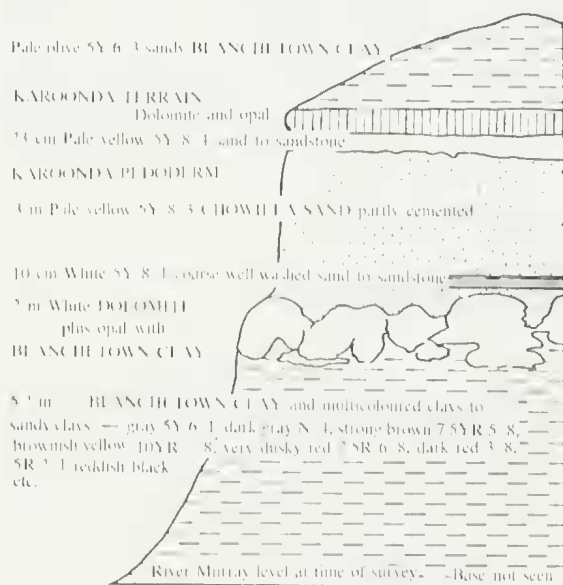 Pale olive 5Y 6/3 sandy BLANCHETOWN CLAY
KAROONDA TERRAIN
Dolomite and opal
cm Pale yellow 5Y 8/4 sand to sandstone
KAROONDA PEDODERM
3 m Pale yellow 5Y 8/3 CHOWILLA SAND partly cemented
10 cm White 5Y 8/1 coarse well washed sand to sandstone
2 m White DOLOMITE
plus opal with
BLANCHETOWN CLAY
m BLANCHETOWN CLAY and multicoloured clays to
sandy clays — gray 5Y 6/1 dark gray N 4, strong brown 7.5YR 5/8,
brownish yellow 10YR 8, very dusky red 6/8, dark red 3/8,
5R 2/1 reddish black
etc.
River Murray level at time of survey. -Base not seen